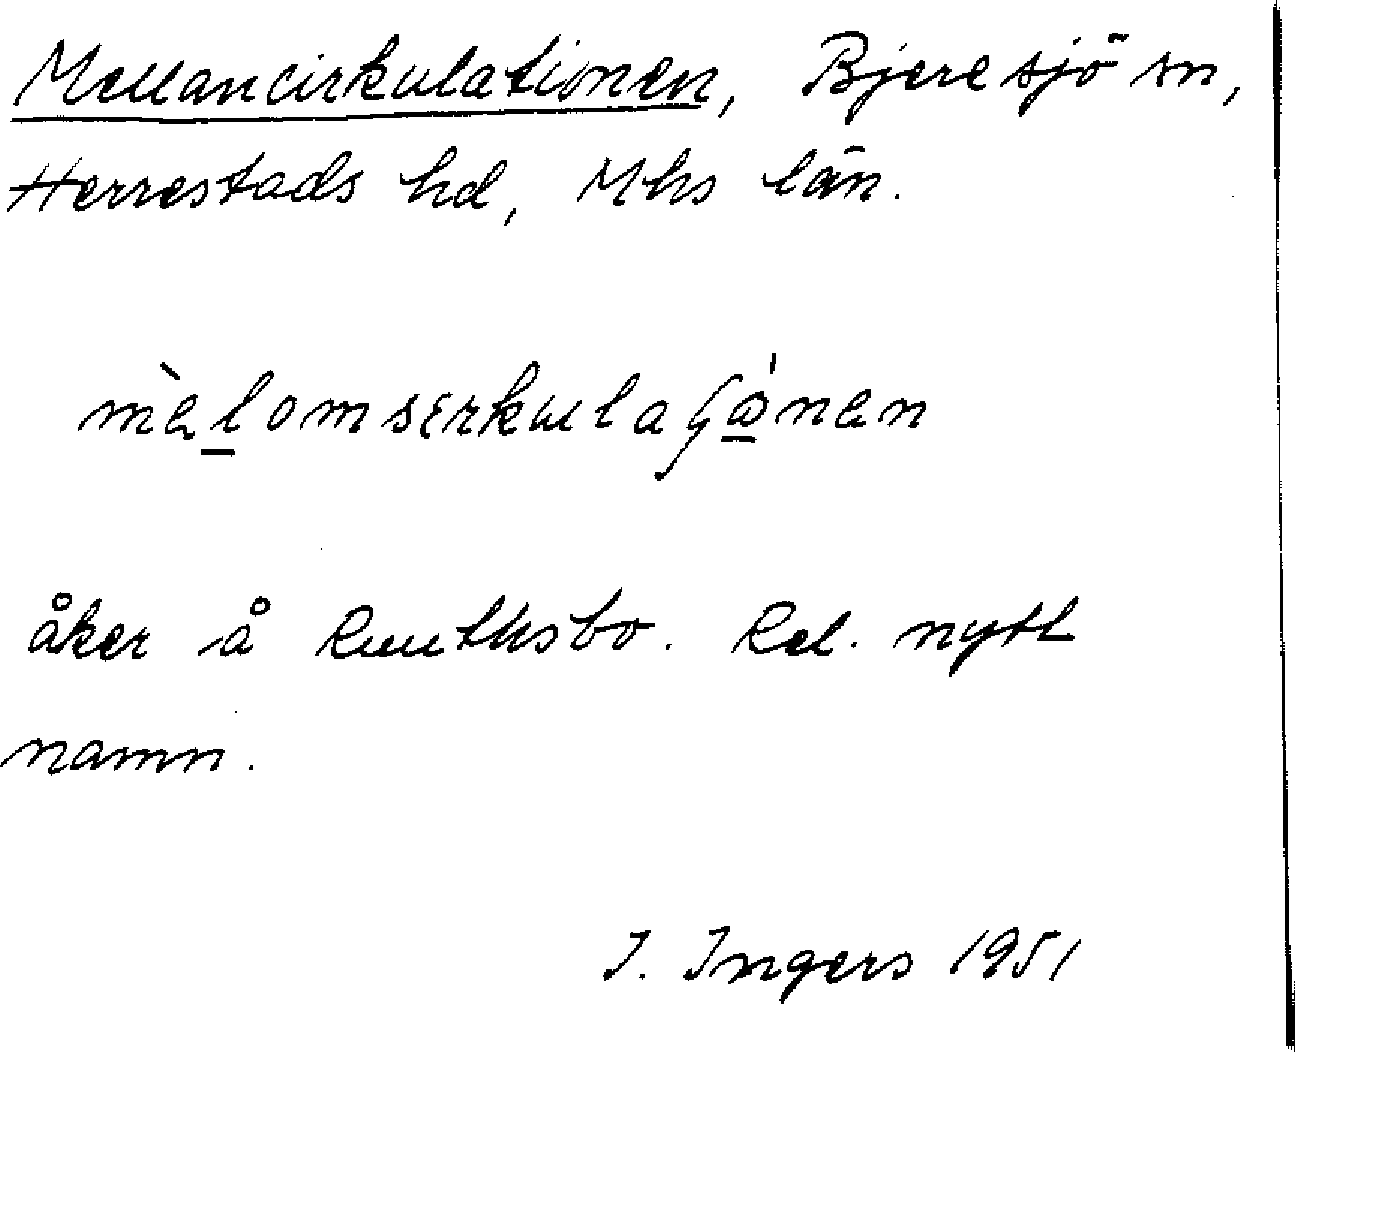 Mellancirkulationen, Bjeresjö sn,
Herrestads hd, Mhs län.
åker å Ruuthsbo. Rel. nytt
namn.
I. Ingers 1951